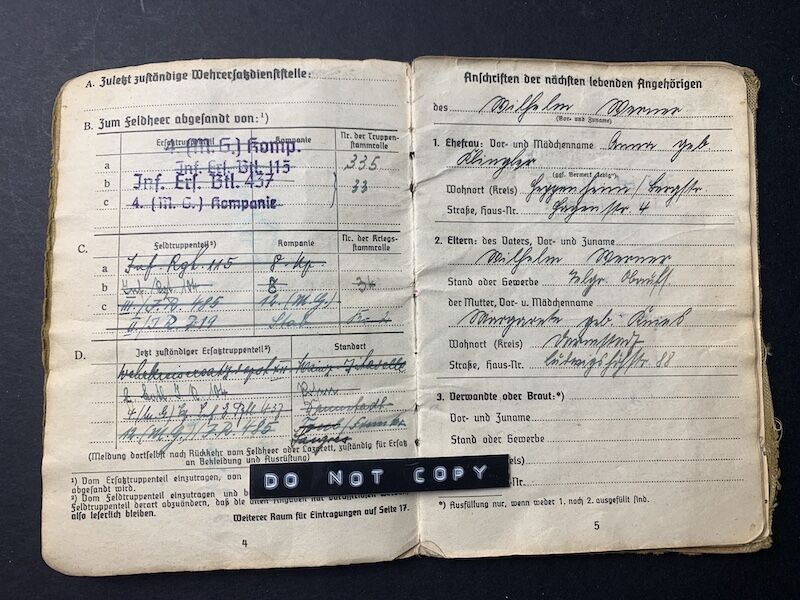 A. Zuletzt zuständige Wehrersatzdienststelle:
B. Zum Feldheer abgesandt von:¹)
Ersatztruppenteil Kompanie Nr. der Truppenstammrolle
4. (M.G.) Komp.
a Inf. Ers. Btl. 115 335
b Inf. Ers. Btl. 437 33
c 4. (M. G.) Kompanie
C. Feldtruppenteil²) Kompanie Nr. der Kriegsstammrolle
a Inf. Rgt. 115 8. Kp.
b 8 34
c III/J.R. 485 12. (M.G.)
II/J.R. 219 Stab
D. Jetzt zuständiger Ersatztruppenteil²) Standort
12. (M.G.) J.R. 485
(Meldung dortselbst nach Rückkehr vom Feldheer oder Lazarett, zuständig für Ersatz
an Bekleidung und Ausrüstung)
¹) Vom Ersatztruppenteil einzutragen, von
abgesandt wird.
²) Vom Feldtruppenteil einzutragen und
Feldtruppenteil derart abzuändern, daß die alten Angaben
also leserlich bleiben.
Weiterer Raum für Eintragungen auf Seite 17.
4
DO NOT COPY
Anschriften der nächsten lebenden Angehörigen
des Wilhelm Werner
(Vor- und Zuname)
1. Ehefrau: Vor- und Mädchenname Anna geb
Klingler
(ggf. Vermerk „ledig")
Wohnort (Kreis) Heppenheim / Bergstr
Straße, Haus-Nr. Hagenstr. 4
2. Eltern: des Vaters, Vor- und Zuname
Wilhelm Werner
Stand oder Gewerbe
der Mutter, Vor- u. Mädchenname
Margarete geb.
Wohnort (Kreis) Darmstadt
Straße, Haus-Nr. 88
3. Verwandte oder Braut:*)
Vor- und Zuname
Stand oder Gewerbe
*) Ausfüllung nur, wenn weder 1. noch 2. ausgefüllt sind.
5